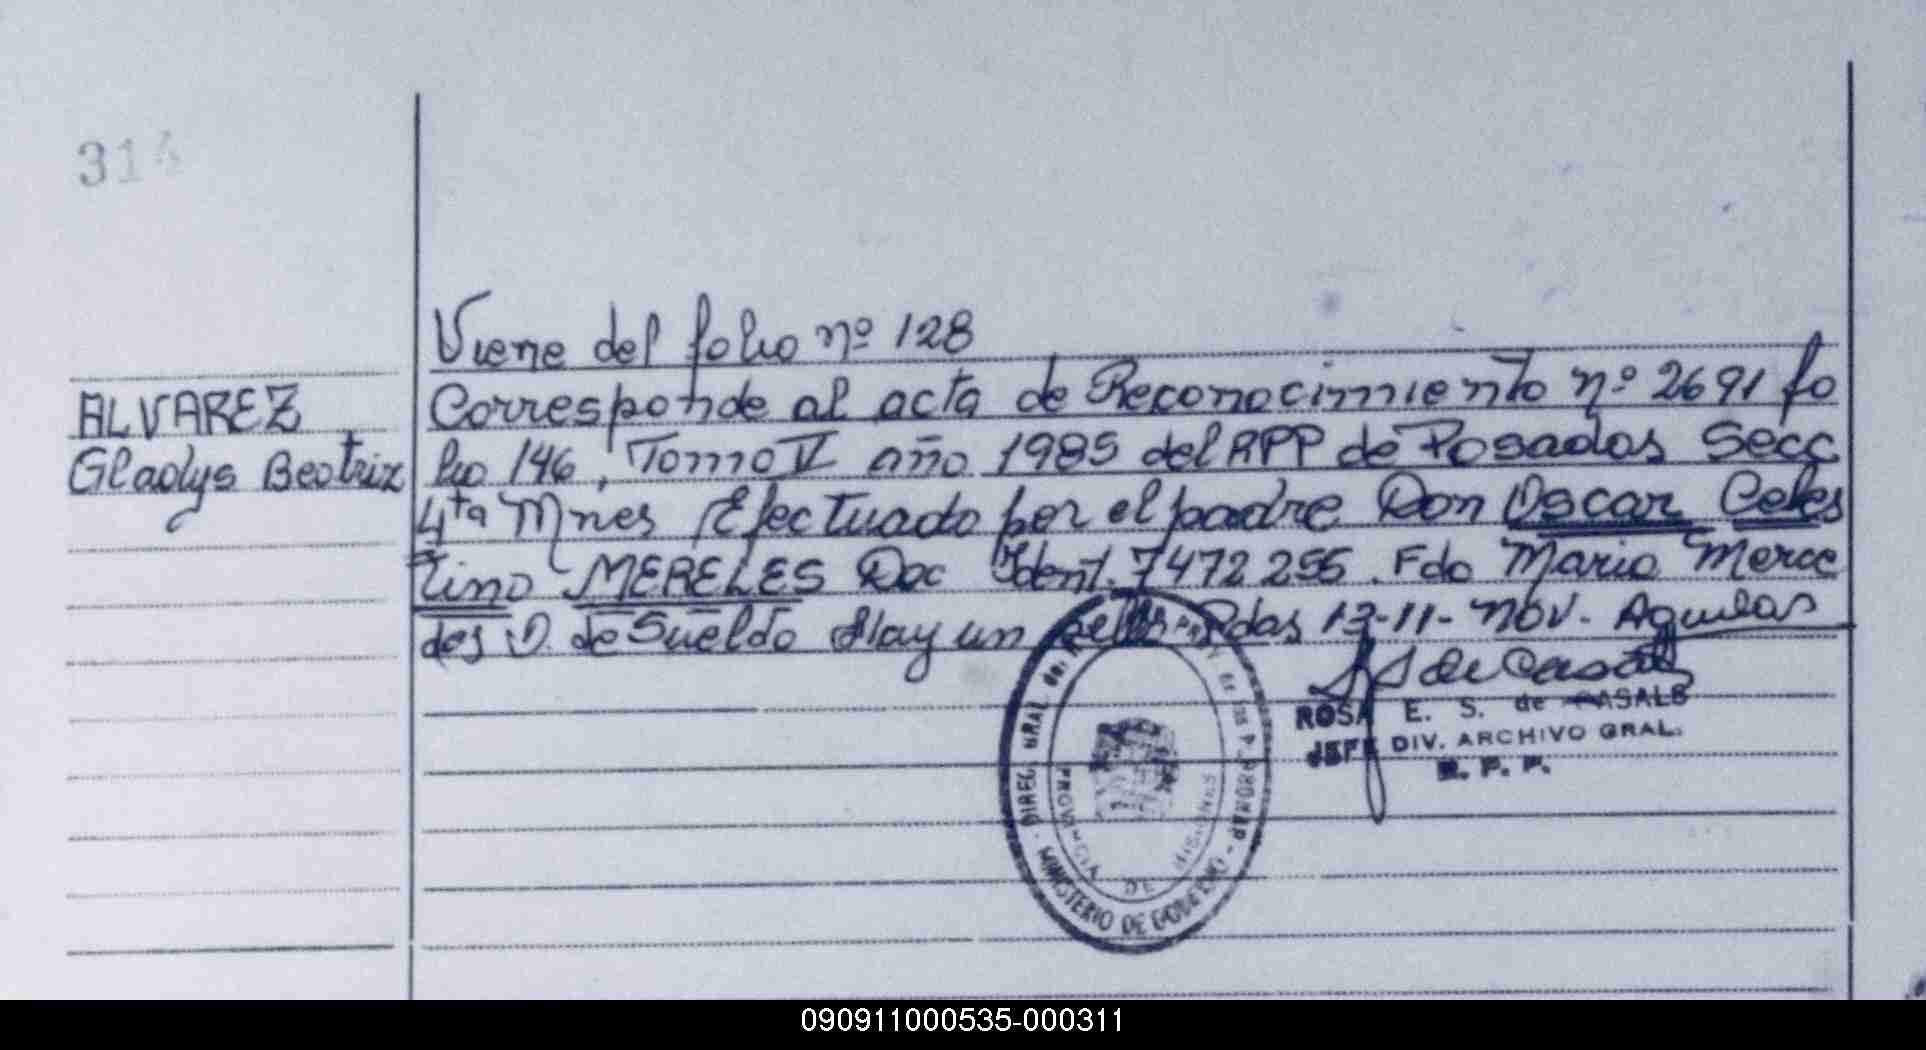 314
Viene del folio nº 128
ALVAREZ
Gladys Beatriz
Corresponde al acta de Reconocimiento nº 2691 fo
lio 146, Tomo V año 1985 del RPP de Posadas Secc
4ta Mnes Efectuado por el padre Don Oscar Celes
tino MERELES Doc Ident. 7472255. Fdo Maria Merce
des D. de Sueldo Hay un sello Pdas 13-11- nov. Aguilas
ROSA E. S. de CASALS
JEFE DIV. ARCHIVO GRAL.
R. P. P.
DIREC. GRAL. del
de las P.
MINISTERIO DE GOBIERNO
PROVINCIA DE MISIONES
090911000535-000311